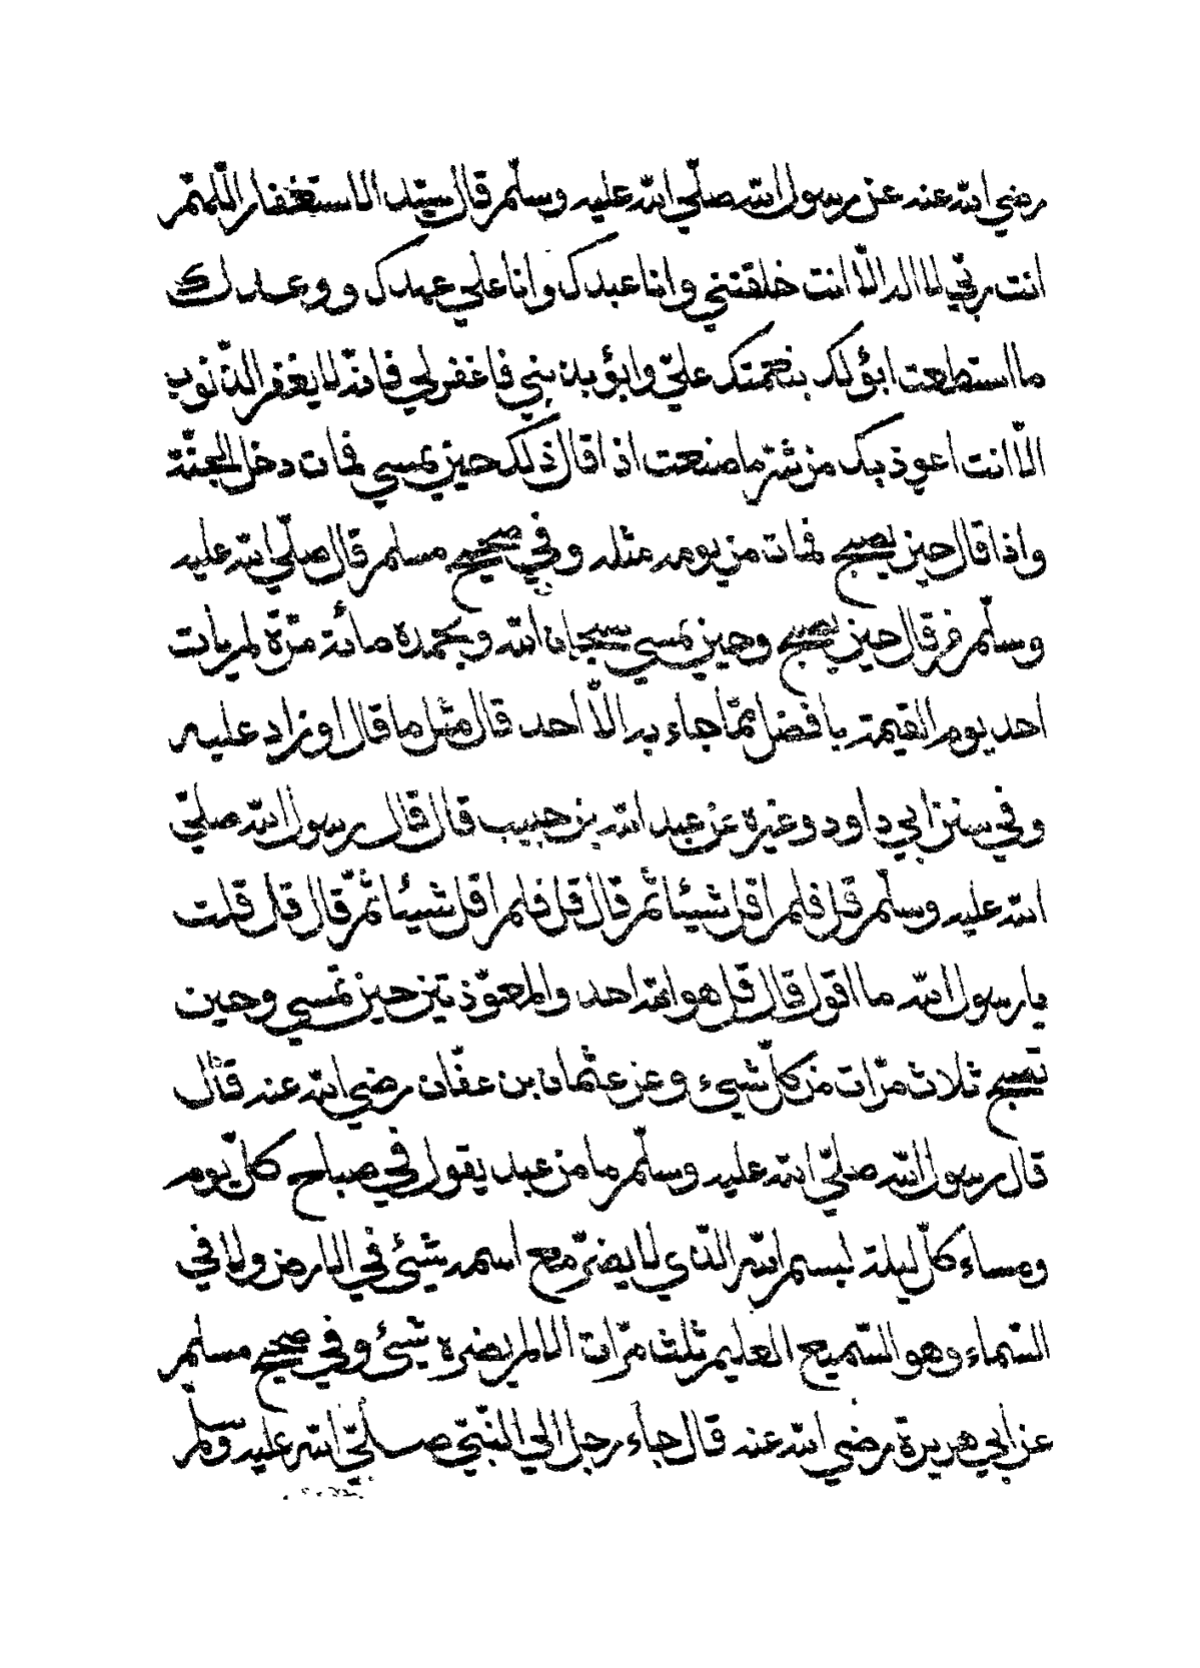 رضي الله عنه عن رسول الله صلّي الله عليه وسلّم قال سيّد الاستغفار اللّهمّ
انت ربّي لا اله الّا انت خلقتني وانا عبدك وانا علي عهدك ووعدك
ما استطعت ابؤ لك بنعمتك عليّ وابؤ بذنبي فاغفر لي فانّه لا يغفر الذّنوب
الّا انت اعوذ بك من شرّ ما صنعت اذا قال ذلك حين يمسي فمات دخل الجنّة
واذا قال حين يصبح فمات من يومه مثله وفي صحيح مسلم قال صلّي الله عليه
وسلّم من قال حين يصبح وحين يمسي سبحان الله وبحمده مائة مرّة لم يأت
احد يوم القيمة بافضل ممّا جاء به الّا احد قال مثل ما قال او زاد عليه
وفي سنن ابي داود وغيره عن عبد الله بن حبيب قال قال رسول الله صلّي
الله عليه وسلّم قل فلم اقل شيئا ثمّ قال قل فلم اقل شيئا ثمّ قال قل قلت
يا رسول الله ما اقول قال قل هو الله احد والمعوّذتين حين تمسي وحين
تصبح ثلاث مرّات من كلّ شيء وعن عثمان بن عفّان رضي الله عنه قال
قال رسول الله صلّي الله عليه وسلّم ما من عبد يقول في صباح كلّ يوم
ومساء كلّ ليلة بسم الله الّذي لا يضرّ مع اسمه شيئ في الارض ولا في
السّماء وهو السّميع العليم ثلث مرّات الا لم يضره شيئ وفي صحيح مسلم
عن ابي هريرة رضي الله عنه قال جاء رجل الي النّبيّ صلّي الله عليه وسلم